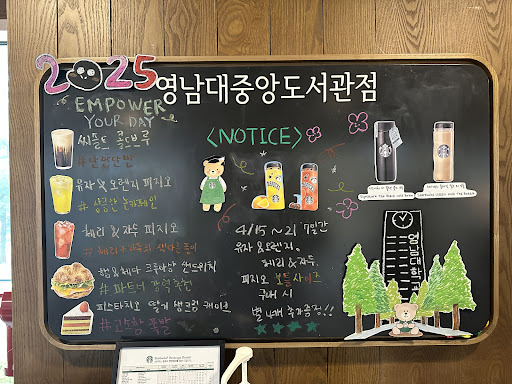 2025
영남대중앙도서관점
EMPOWER
YOUR DAY
씨솔트 콜드브루
#단짠단짠
유자 & 오렌지 피지오
#상큼한
체리 & 자두 피지오
햄 & 체다 크루아상 샌드위치
#파트너 강력추천
피스타치오 딸기 생크림 케이크
#고소함 폭발
<NOTICE>
4/15~21 7일간
유자 & 오렌지,
체리 & 자두
피지오 보틀사이즈
구매 시
별 4개 추가증정!!
★★★★
영남대학교